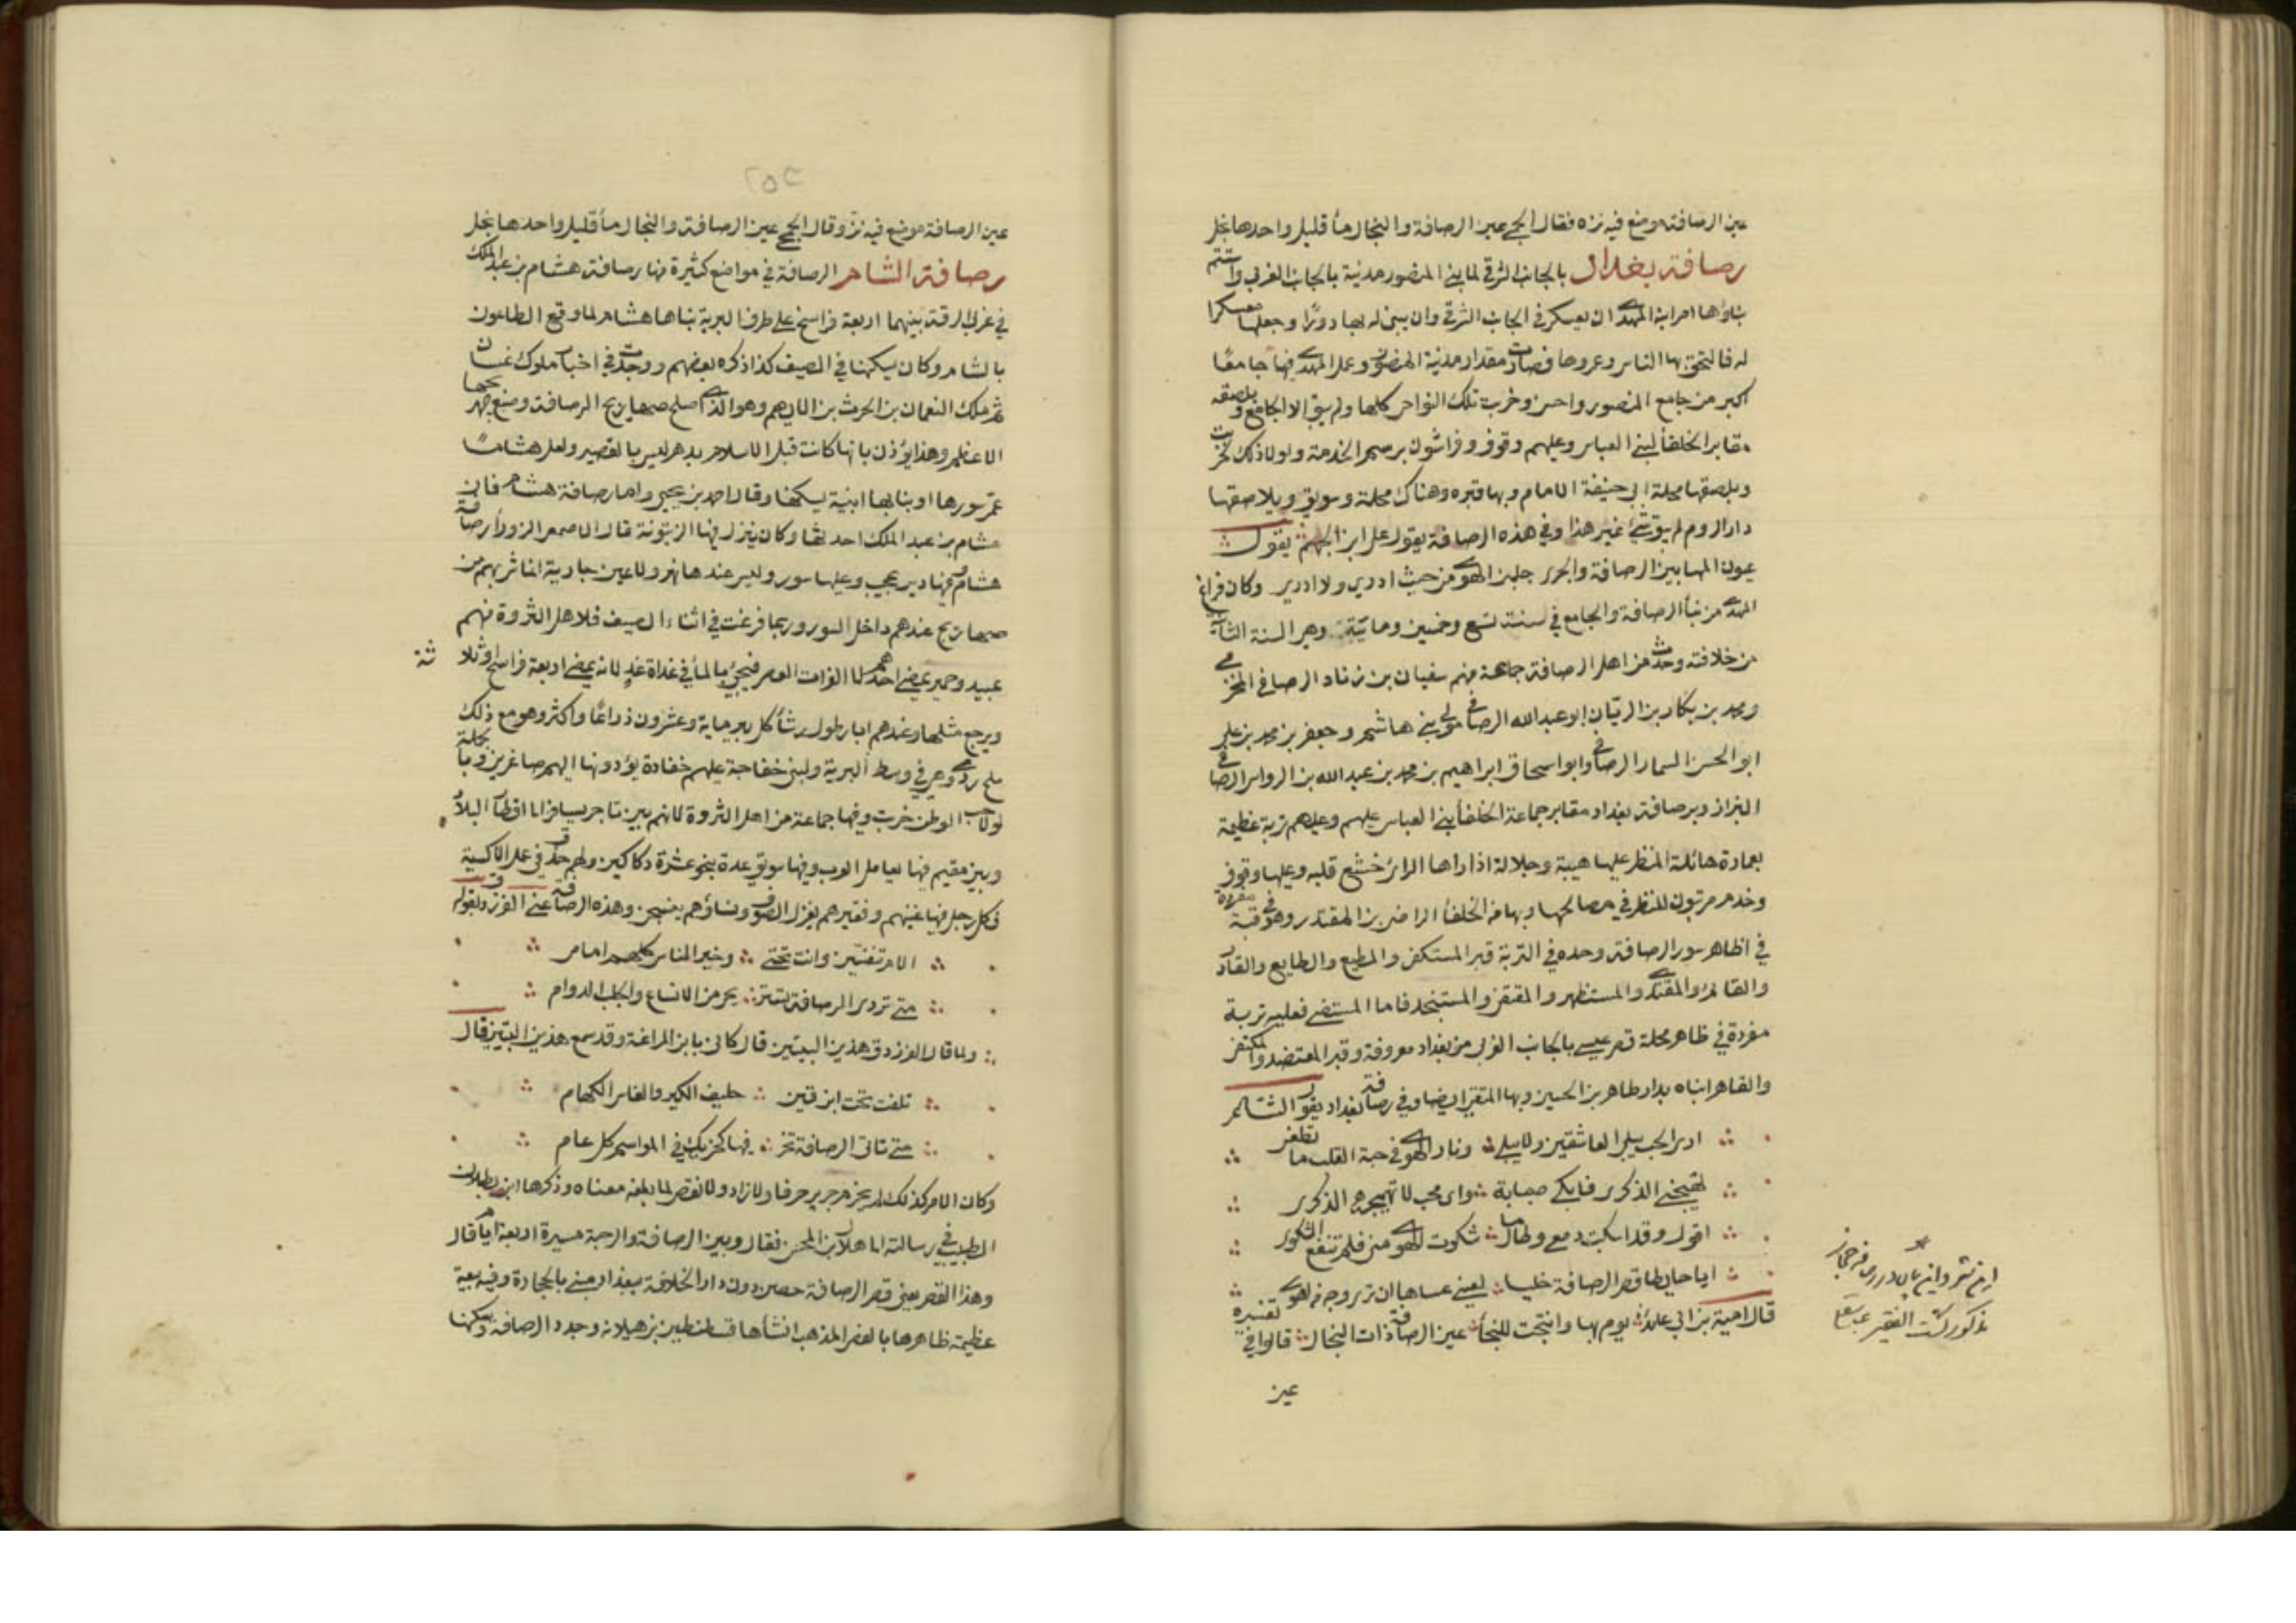 عين الرصافة موضع فيه نزه فقال الجمحي عين الرصافة والنجال ماء قليل واحدها نجل
رصافة بغداد بالجانب الشرقي لما بنى المنصور مدينة بالجانب الغربي واستتم
بناؤها امر ابنه المهدي ان يعسكر في الجانب الشرقي وان يبنى له بها دورًا وجعلها معسكرا
له فالتحق بها الناس وعمروها فصارت مقدار مدينة المنصور وعمل المهدي فيها جامعًا
اكبر من جامع المنصور واحسن وخربت تلك النواحي كلها ولم يبق الا الجامع وبلصقه
مقابر الخلفاء لبني العباس وعليهم وقوف وفراشون برسم الخدمة ولولا ذلك لخربت
وبلصقها محلة ابي حنيفة الامام وبها قبره وهناك محلة وسويق ويلاصقها
دار الروم لم يبق شئ غير هذا وفي هذه الرصافة يقول علي ابن الجهم يقول
عيون المها بين الرصافة والجسر جلبن الهوى من حيث ادري ولا ادري وكان فراغ
المهدي من بناء الرصافة والجامع في سنة تسع وخمسين وماية وهي السنة الثانية
من خلافته وحدث من اهل الرصافة جماعة منهم سفيان بن زياد الرصافي المخرمي
ومحمد بن بكار بن الريان ابو عبد الله الرصافي مولى بني هاشم وجعفر بن محمد بن علي
ابو الحسن السمار الرصافي وابو اسحاق ابراهيم بن محمد بن عبد الله بن الرواس الرصافي
البزاز وبرصافة بغداد مقابر جماعة الخلفاء بني العباس عليهم وعليهم تربة عظيمة
بعمارة هائلة المنظر عليها هيبة وجلالة اذا راها الرائ خشع قلبه وعليها وقوف
وخدم مرتبون للنظر في مصالحها وبها من الخلفاء الراضي بن المقتدر وهو في قبة مفردة
في ظاهر سور الرصافة وحده في التربة قبر المستكفى والمطيع والطايع والقادر
والقائم والمقتدي والمستظهر والمقتفي والمستنجد فاما المستضي فعليه تربة
مفردة في ظاهر محلة قصر عيسى بالجانب الغربي من بغداد معروفة وقبر المعتضد والمكتفي
والقاهر ابناه بدار طاهر بن الحسين وبها المتقي ايضا وفي رصافة بغداد يقول الشاعر
ارى الحب يبلي العاشقين ولا يبلى ونار الهوى في حبة القلب ما تطفى
تهيجني الذكرى فابكي صبابة واى محب لا تهيجه الذكرى
اقول وقد اسكبت دمعي وطالما شكوت الهوى مني فلم تنفع الشكوى
ايا حايطا قصر الرصافة خليا لعيني عساها ان ترى وجه من تهوى
قال امية بن ابي عايذ يوم بها وانتجت للنجاء عين الرصافة ذات النجال قالوا في تفسيره
عين
عين الرصافة موضع فيه نز وقال الجمحي عين الرصافة والنجال ماء قليل واحدها نجل
رصافة الشام الرصافة في مواضع كثيرة منها رصافة هشام بن عبد الملك
في غربي الرقة بينهما اربعة فراسخ على طرف البرية بناها هشام لما وقع الطاعون
بالشام وكان يسكنها في الصيف كذا ذكره بعضهم ووجدت في اخبار ملوك غسان
ثم ملك النعمان بن الحرث بن الايهم وهو الذي اصلح صهاريج الرصافة وصنع صهريجها
الاعظم وهذا يؤذن بانها كانت قبل الاسلام بدهر ليس بالقصير ولعل هشاما
عمر سورها او بنا بها ابنية ليسكنها وقال احمد بن يحيى واما رصافة هشام فان
هشام بن عبد الملك احدثها وكان ينزل فيها الزيتونة قال الاصمعي الزوراء رصافة
هشام وفيها دير عجيب وعليها سور وليس عندها نهر ولا عين جارية انما شربهم من
صهاريج عندهم داخل السور وربما فرغت في اثناء الصيف فلاهل الثروة منهم
عبيد وحمير يمضي احدهم الى الفرات العصر فيجئ بالماء في غداة غد لانه يمضي اربعة فراسخ او ثلاثة
ويرجع مثلها وعندهم ابار طول رشاء كل بير ماية وعشرون ذراعًا واكثر وهو مع ذلك
ملح ردي وهي في وسط البرية ولبني خفاجة عليهم خفارة يؤدونها اليهم صاغرين وبالجملة
لولا حب الوطن خربت وفيها جماعة من اهل الثروة لانهم بين تاجر يسافر الى اقطار البلاد
وبين مقيم فيها يعامل العرب وفيها سويق عدة نحو عشرة دكاكين ولهم حذق في عمل الاكسية
فكل رجل فيها غنيهم وفقيرهم يغزل الصوف ونساؤهم ينسجن وهذه الرصافة عنى الفرزدق بقوله
الام تلفتين وانت تحتي وخير الناس كلهم امامي
متى تردى الرصافة تستريحي من الانساع والجلب الدوام
ولما قال الفرزدق هذين البيتين قال كاني بابن المراغة وقد سمع هذين البيتين قال
تلفت تحت ابن قين حليف الكير والفاس الكهام
متى تاتى الرصافة تخز فيها كخزيك في المواسم كل عام
وكان الامر كذلك لم يخرم جرير حرفا ولا زاد ولا نقص لما بلغه معناه وذكرها ابن بطلان
الطبيب في رسالته الى هلال بن المحسن فقال وبين الرصافة والرحبة مسيرة اربعة ايام قال
وهذا القصر يعني قصر الرصافة حصن دون دار الخلافة ببغداد مبني بالحجارة وفيه بيعة
عظيمة ظاهرها بالفص المذهب انشأها قسطنطين بن هيلانة وجدد الرصافة وسكنها